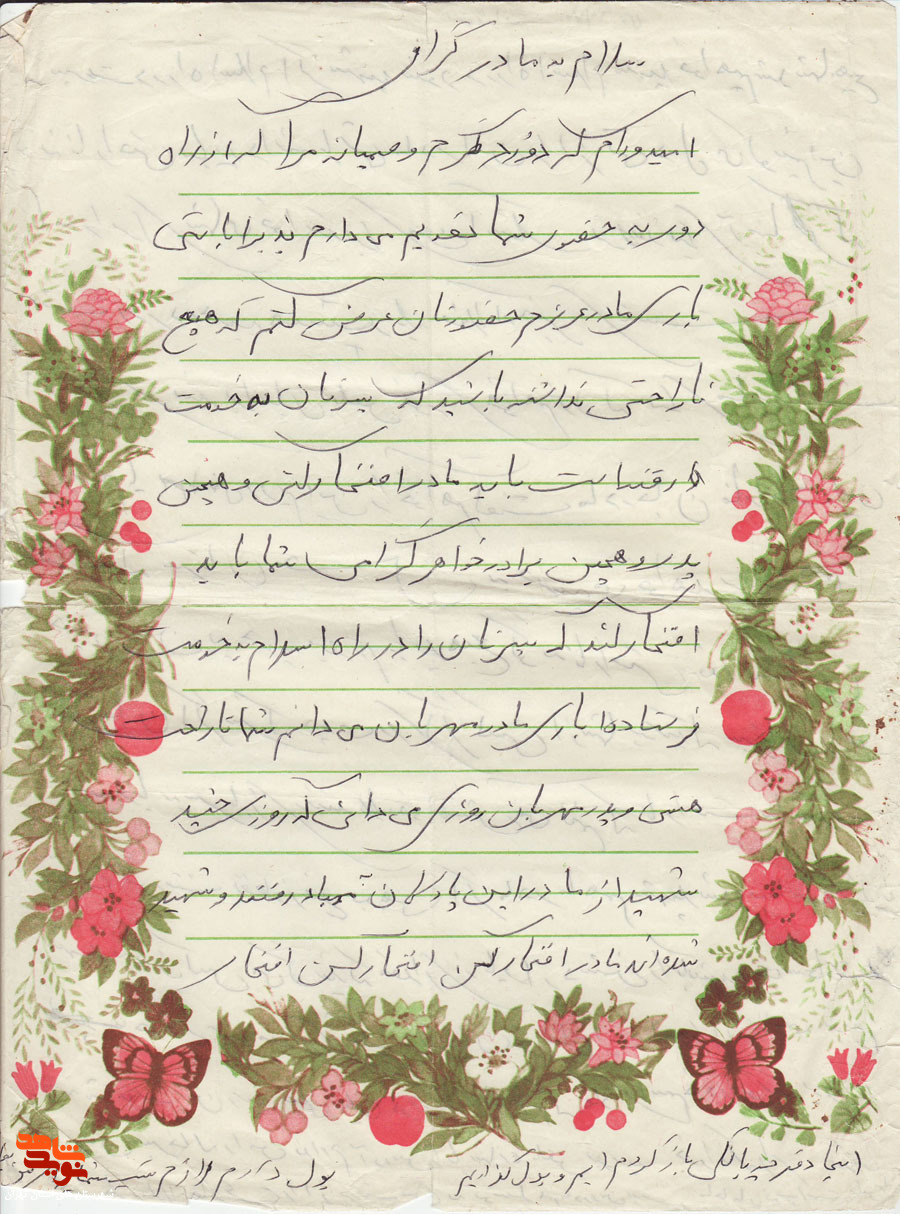 سلام به مادر گرامی
امیدوارم که درود گرم و صمیمانه مرا که از راه
دور به حضور شما تقدیم می دارم پذیرا باشی
باری مادر عزیزم حضورتان عرض کنم که هیچ
ناراحتی نداشته باشید که پسرتان به خدمت
رفته است باید مادر افتخار کنی و همچنین
پدر و همچنین برادر خواهر گرامی شما باید
افتخار کنند که پسرتان را در راه اسلام به خدمت
فرستاده اباری مادر مهربان می دانم شما ناراحت
هستی و پدر مهربان روزی می دانی که روزی چند
شهید از ما در این پادگان به جهاد رفتند و شهید
شده اند مادر افتخار کن افتخار کن افتخار
اینجا دفترچه بانکی باز کردم ایم و پول گذاریم
پول دارم
نوید شاهد